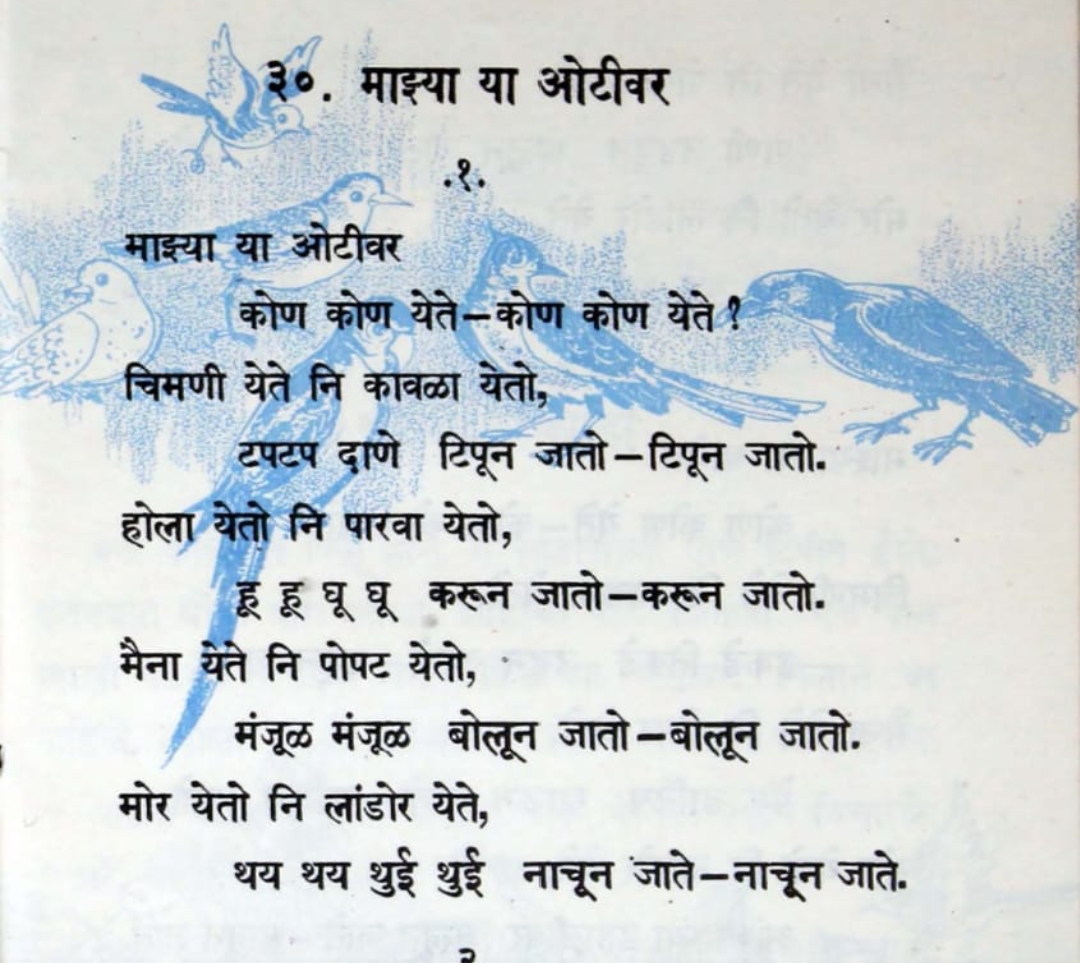 ३०. माझ्या या ओटीवर
.१.
माझ्या या ओटीवर
कोण कोण येते–कोण कोण येते?
चिमणी येते नि कावळा येतो,
टपटप दाणे टिपून जातो–टिपून जातो.
होला येतो नि पारवा येतो,
हू हू घू घू करून जातो–करून जातो.
मैना येते नि पोपट येतो,
मंजूळ मंजूळ बोलून जातो–बोलून जातो.
मोर येतो नि लांडोर येते,
थय थय थुई थुई नाचून जाते–नाचून जाते.